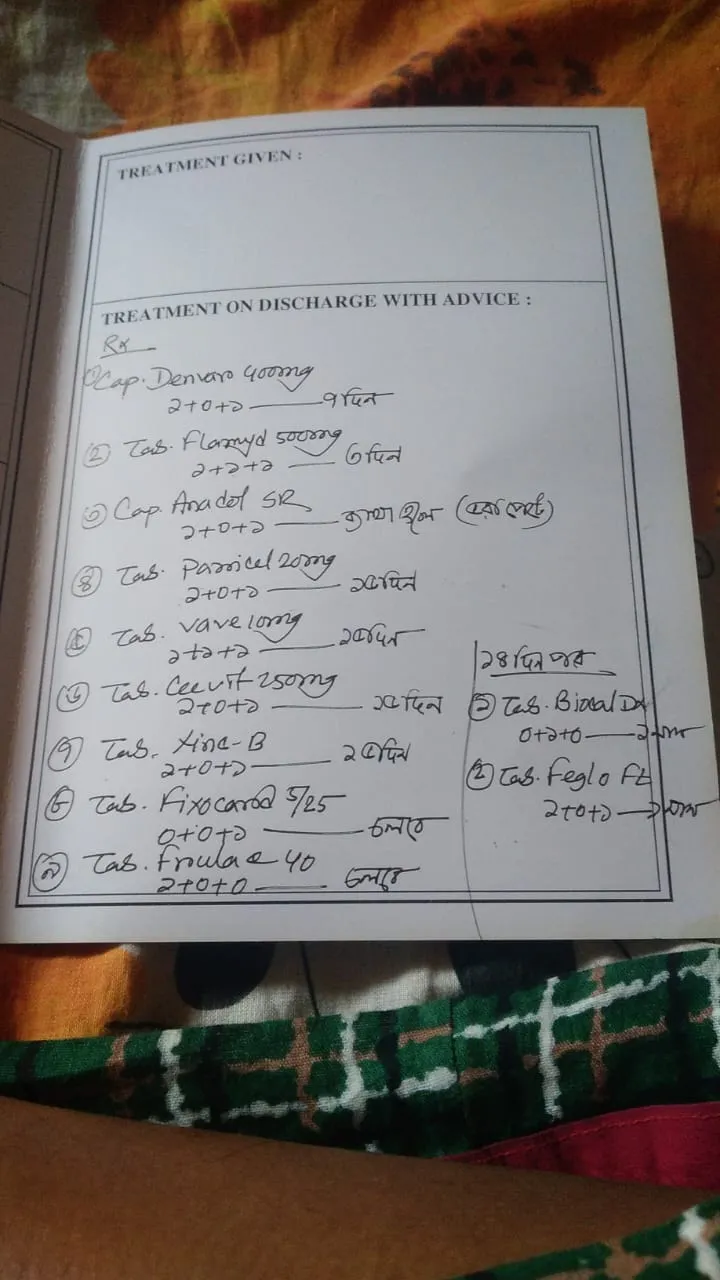 TREATMENT GIVEN :
TREATMENT ON DISCHARGE WITH ADVICE :
Rx
① Cap. Denvar 400mg
১+০+১ ——— ৭দিন
② Tab. Flamyd 500mg
১+১+১ —— ৩দিন
③ Cap. Anadol SR
১+০+১ ——— ব্যাথা হলে (ভরা পেটে)
④ Tab. Parricel 20mg
১+০+১ ——— ১৫দিন
⑤ Tab. vave 10mg
১+১+১ ——— ১০দিন
⑥ Tab. Ceevit 250mg
১+০+১ ——— ১৫দিন
⑦ Tab. Xinc-B
১+০+১ ——— ১৫দিন
⑧ Tab. Fixocard 5/25
০+০+১ ——— চলবে
⑨ Tab. Frulac 40
১+০+০ ——— চলবে
১৪দিন পর
① Tab. Biocal D
০+১+০ ——— ১মাস
② Tab. Feglo FZ
১+০+১ —— ১মাস